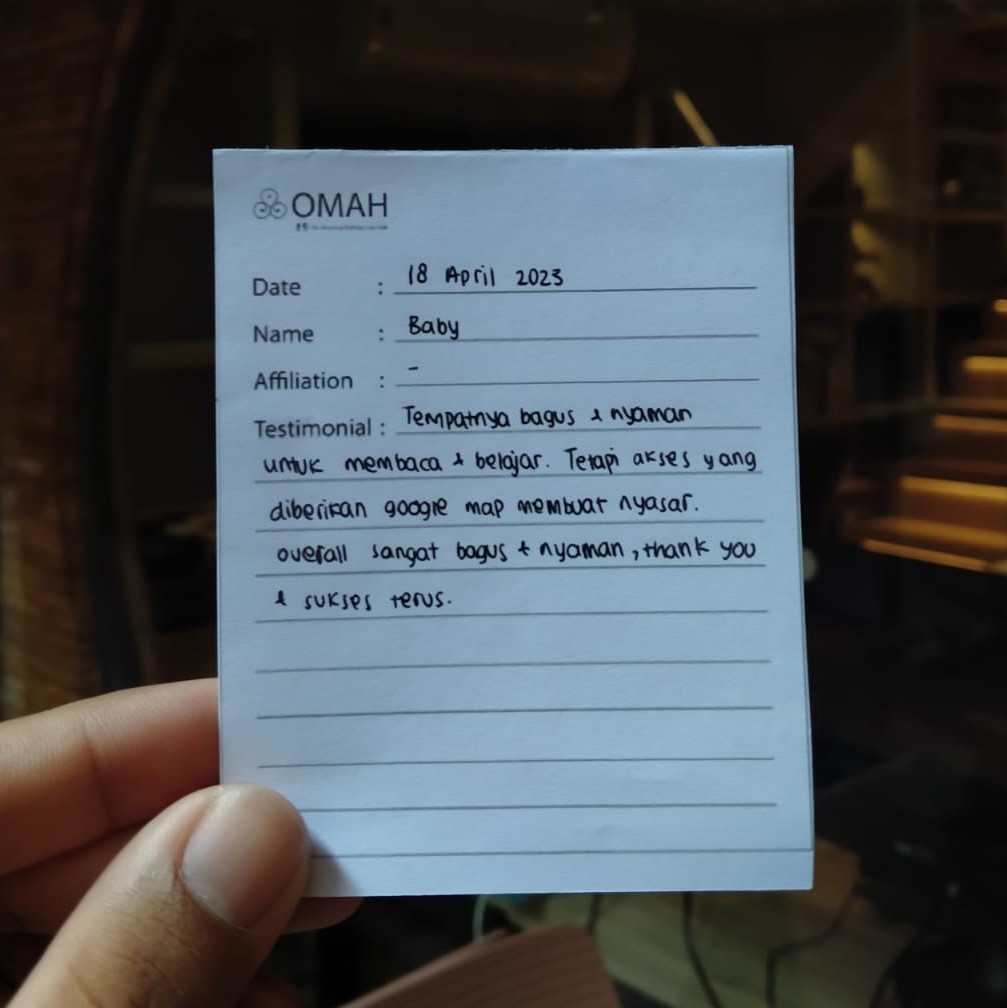 OMAH
Date : 18 April 2023
Name : Baby
Affiliation : -
Testimonial : Tempatnya bagus & nyaman
untuk membaca & belajar. Tetapi akses yang
diberikan google map membuat nyasar.
overall sangat bagus & nyaman, thank you
& sukses terus.